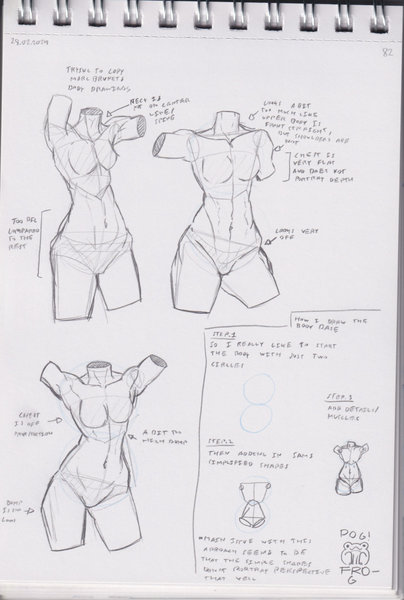 28.02.2019
82
TRYING TO COPY
MARC BRUNETS
BODY DRAWINGS
NECK IS
NOT ON CENTER
LINES
LOOKS A BIT
TOO MUCH LIKE
UPPER BODY IS
FRONT
BUT SHOULDERS ARE
NOT
CHEST IS
VERY FLAT
AND DOES NOT
PORTRAY DEPTH
TOO BIG
COMPARED TO
THE REST
LOOKS VERY
OFF
HOW I DRAW THE
BODY BASE
STEP.1
SO I REALLY LIKE TO START
THE BODY WITH JUST TWO
CIRCLES
STEP.2
THEN ADDING IN SOME
SIMPLIFIED SHAPES
STEP.3
ADD DETAILS/
MUSCLES
CHEST
IS OFF
A BIT TOO
MUCH
IS TOO
LOW
*MAIN ISSUE WITH THIS
APPROACH SEEMS TO BE
THAT THE SIMPLE SHAPES
DON'T PORTRAY PERSPECTIVE
THAT WELL
POG!
FRO-
G